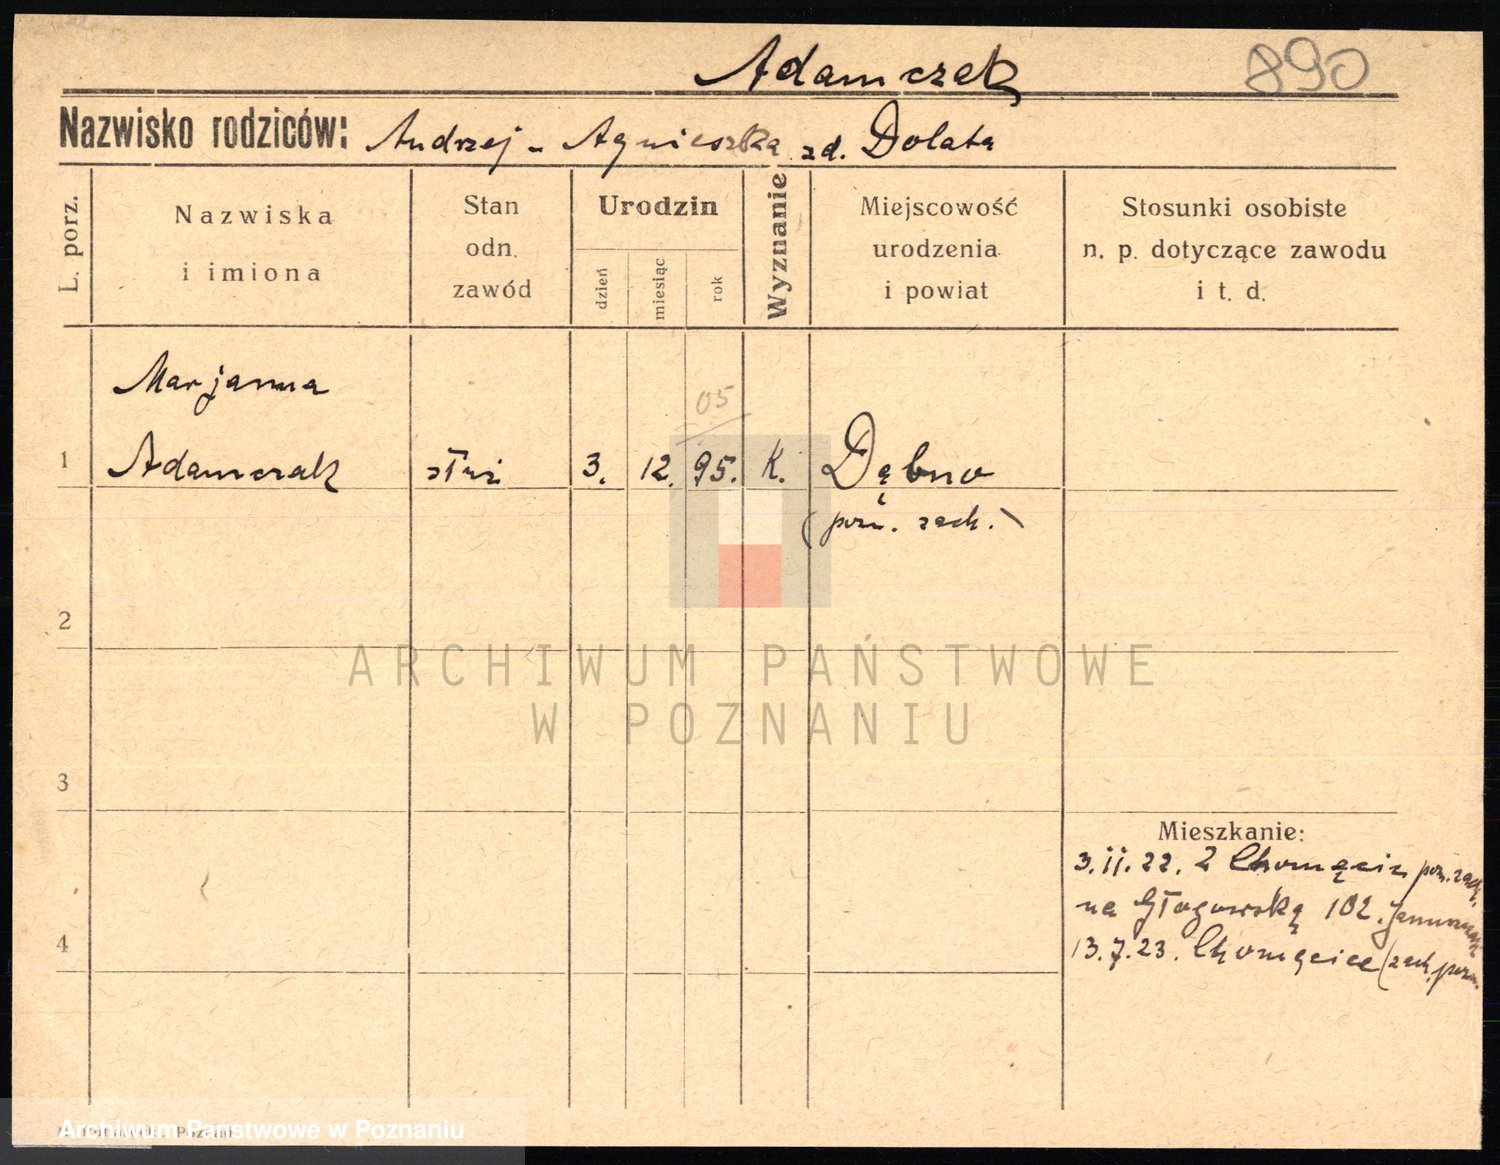 Adamczak
890
Nazwisko rodziców: Andrzej - Agnieszka zd. Dolata
L. porz.
Nazwiska
i imiona
Stan
odn.
zawód
Urodzin
dzień
miesiąc
rok
Wyznanie
Miejscowość
urodzenia
i powiat
Stosunki osobiste
n. p. dotyczące zawodu
i t. d.
Marjanna
05
1 Adamczak służ 3. 12. 95. K. Dębno
(pozn. zach.)
2
ARCHIWUM PAŃSTWOWE
W POZNANIU
3
Mieszkanie:
3.11.22. Z Chomęcic pozn. zach.
na Głogowską 102.
4
13.7.23. Chomęcice (zach. pozn.
Archiwum Państwowe w Poznaniu